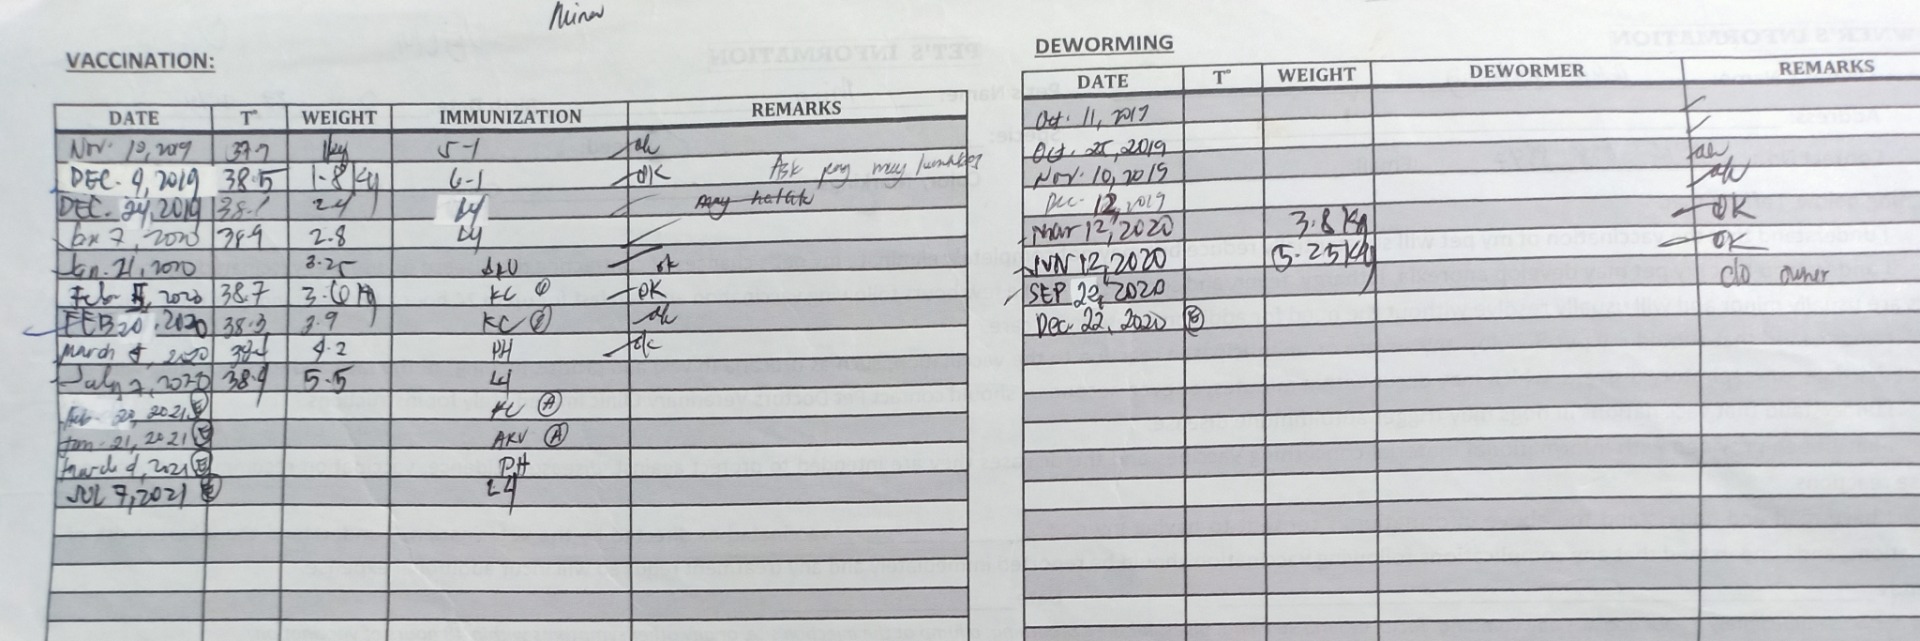 VACCINATION:
DATE T° WEIGHT IMMUNIZATION REMARKS
Nov. 10, 2019 37.7 5-1 ok
DEC. 9, 2019 38.5 1.8 Kg 6-1 OK Ask may
DEC. 24, 2019 38.1 2.4 L4
Jan 7, 2020 38.9 2.8 L4
Jan. 21, 2020 3.25 ARV ok
Feb 2020 38.7 3.6 Kg KC OK
FEB 20, 2020 38.3 3.9 KC ok
March 2020 4.2 PH ok
July 7, 2020 38.9 5.5 L4
Feb 20, 2021 E KC A
Jan. 21, 2021 E ARV A
March 4, 2021 E PH
JUL 7, 2021 E L4
DEWORMING
DATE T° WEIGHT DEWORMER REMARKS
Oct. 11, 2019
Oct. 25, 2019
Nov. 10, 2019
Dec. 12, 2019
Mar 12, 2020 3.8 Kg OK
JUN 12, 2020 5.25 Kg OK
SEP 22, 2020 c/o owner
Dec. 22, 2020 E